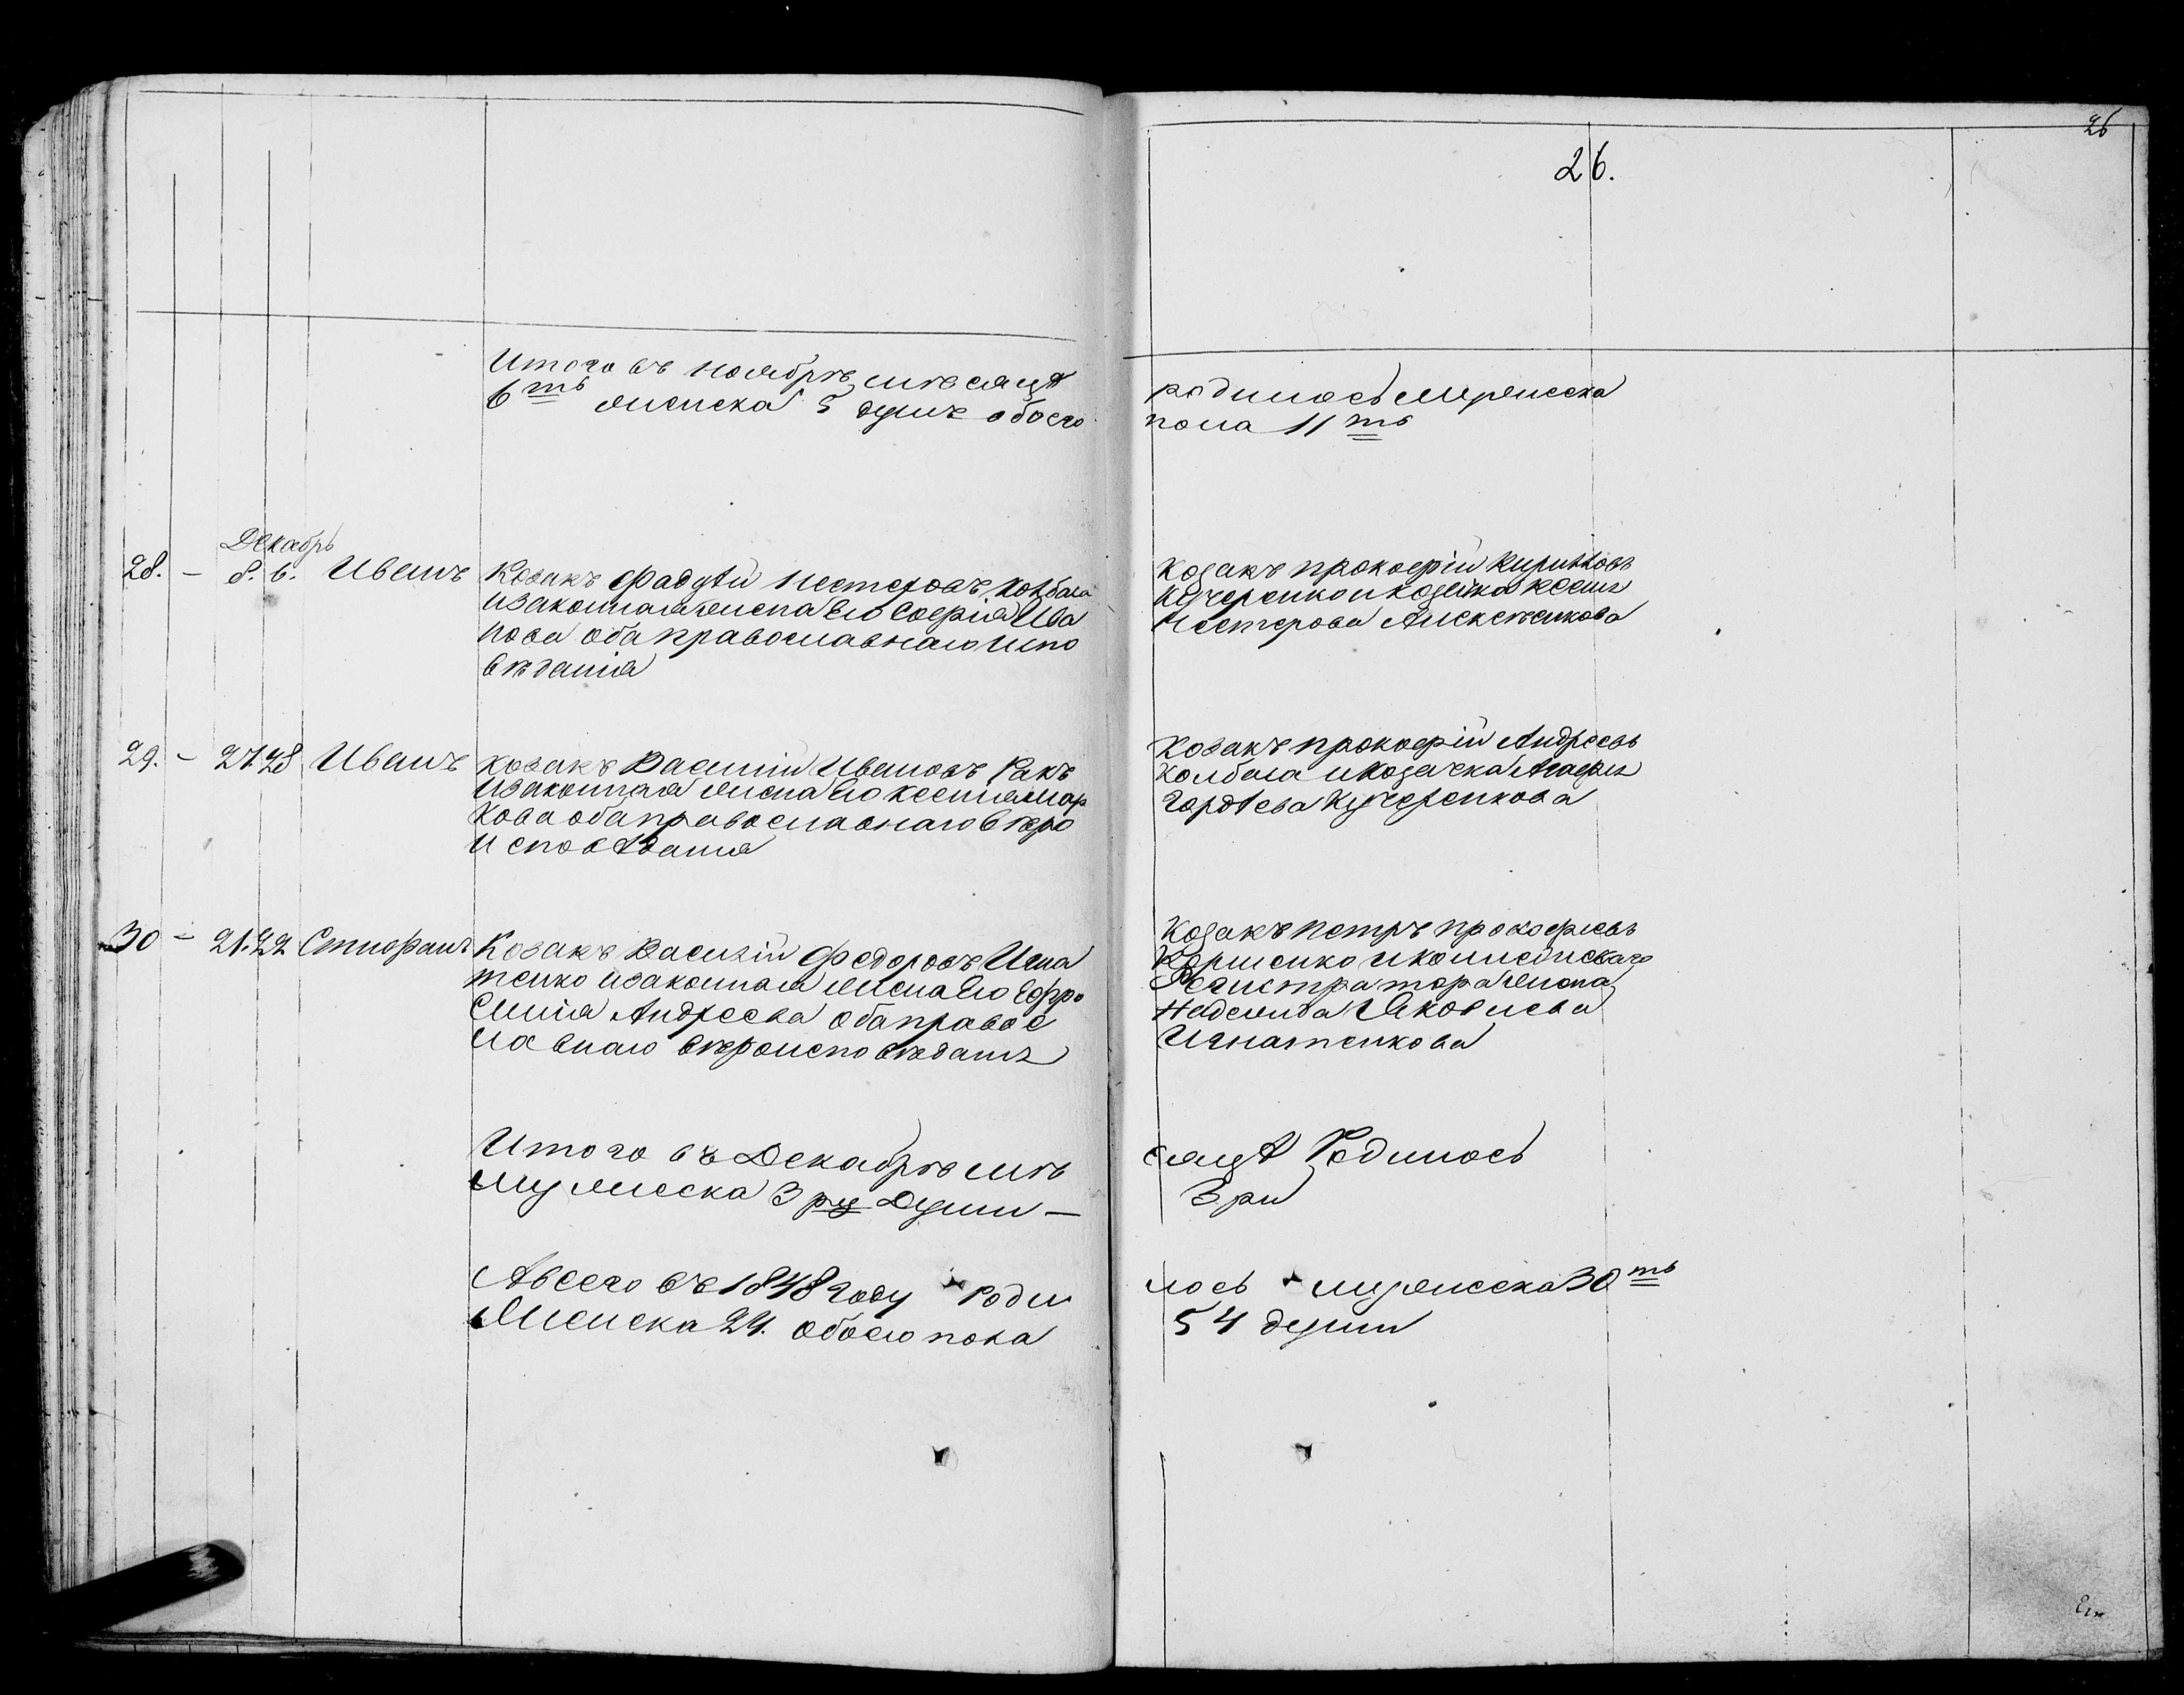 26
26.
Итого въ ноябрѣ мѣсяцѣ
6ть женска 5 душъ обоего
родилось муженска
пола 11ть
Декабрь
28. – 8. 6. Иванъ
Козакъ Фадѣй Нестеровъ Колбаса
изаконная жена его Софія Ива
нова оба православнаго испо
вѣданія
Козакъ прокофій Кириловъ
Кучеренко и козачка Ксенія
Нестерова Алексѣенкова
29. – 27. 28 Иванъ
Козакъ Василій Ивановъ Ракъ
изаконная жена его Ксенія Мар
кова оба православнаго вѣро
исповѣданія
Козакъ прокофій Андреевъ
Колбаса и козачка Агафія
Гордѣева Кучеренкова
30 – 21. 22 Стиофанъ
Козакъ Василій Федоровъ Игна
тенко изаконная жена его Ефро
синія Андреева оба правос
лавнаго вѣроисповѣданія
Козакъ Петръ прокофіевъ
Корниенко и колиединскаго
Регистратора жена
Надежида Яковлева
Игнатенкова
Итого въ Декабрѣ мѣ
сяцѣ Родилось
муженска 3 ри Души –
3 ри
Авсего въ 1848 году Роди
лось муженска 30ть
Женска 24. обоего пола
54 души